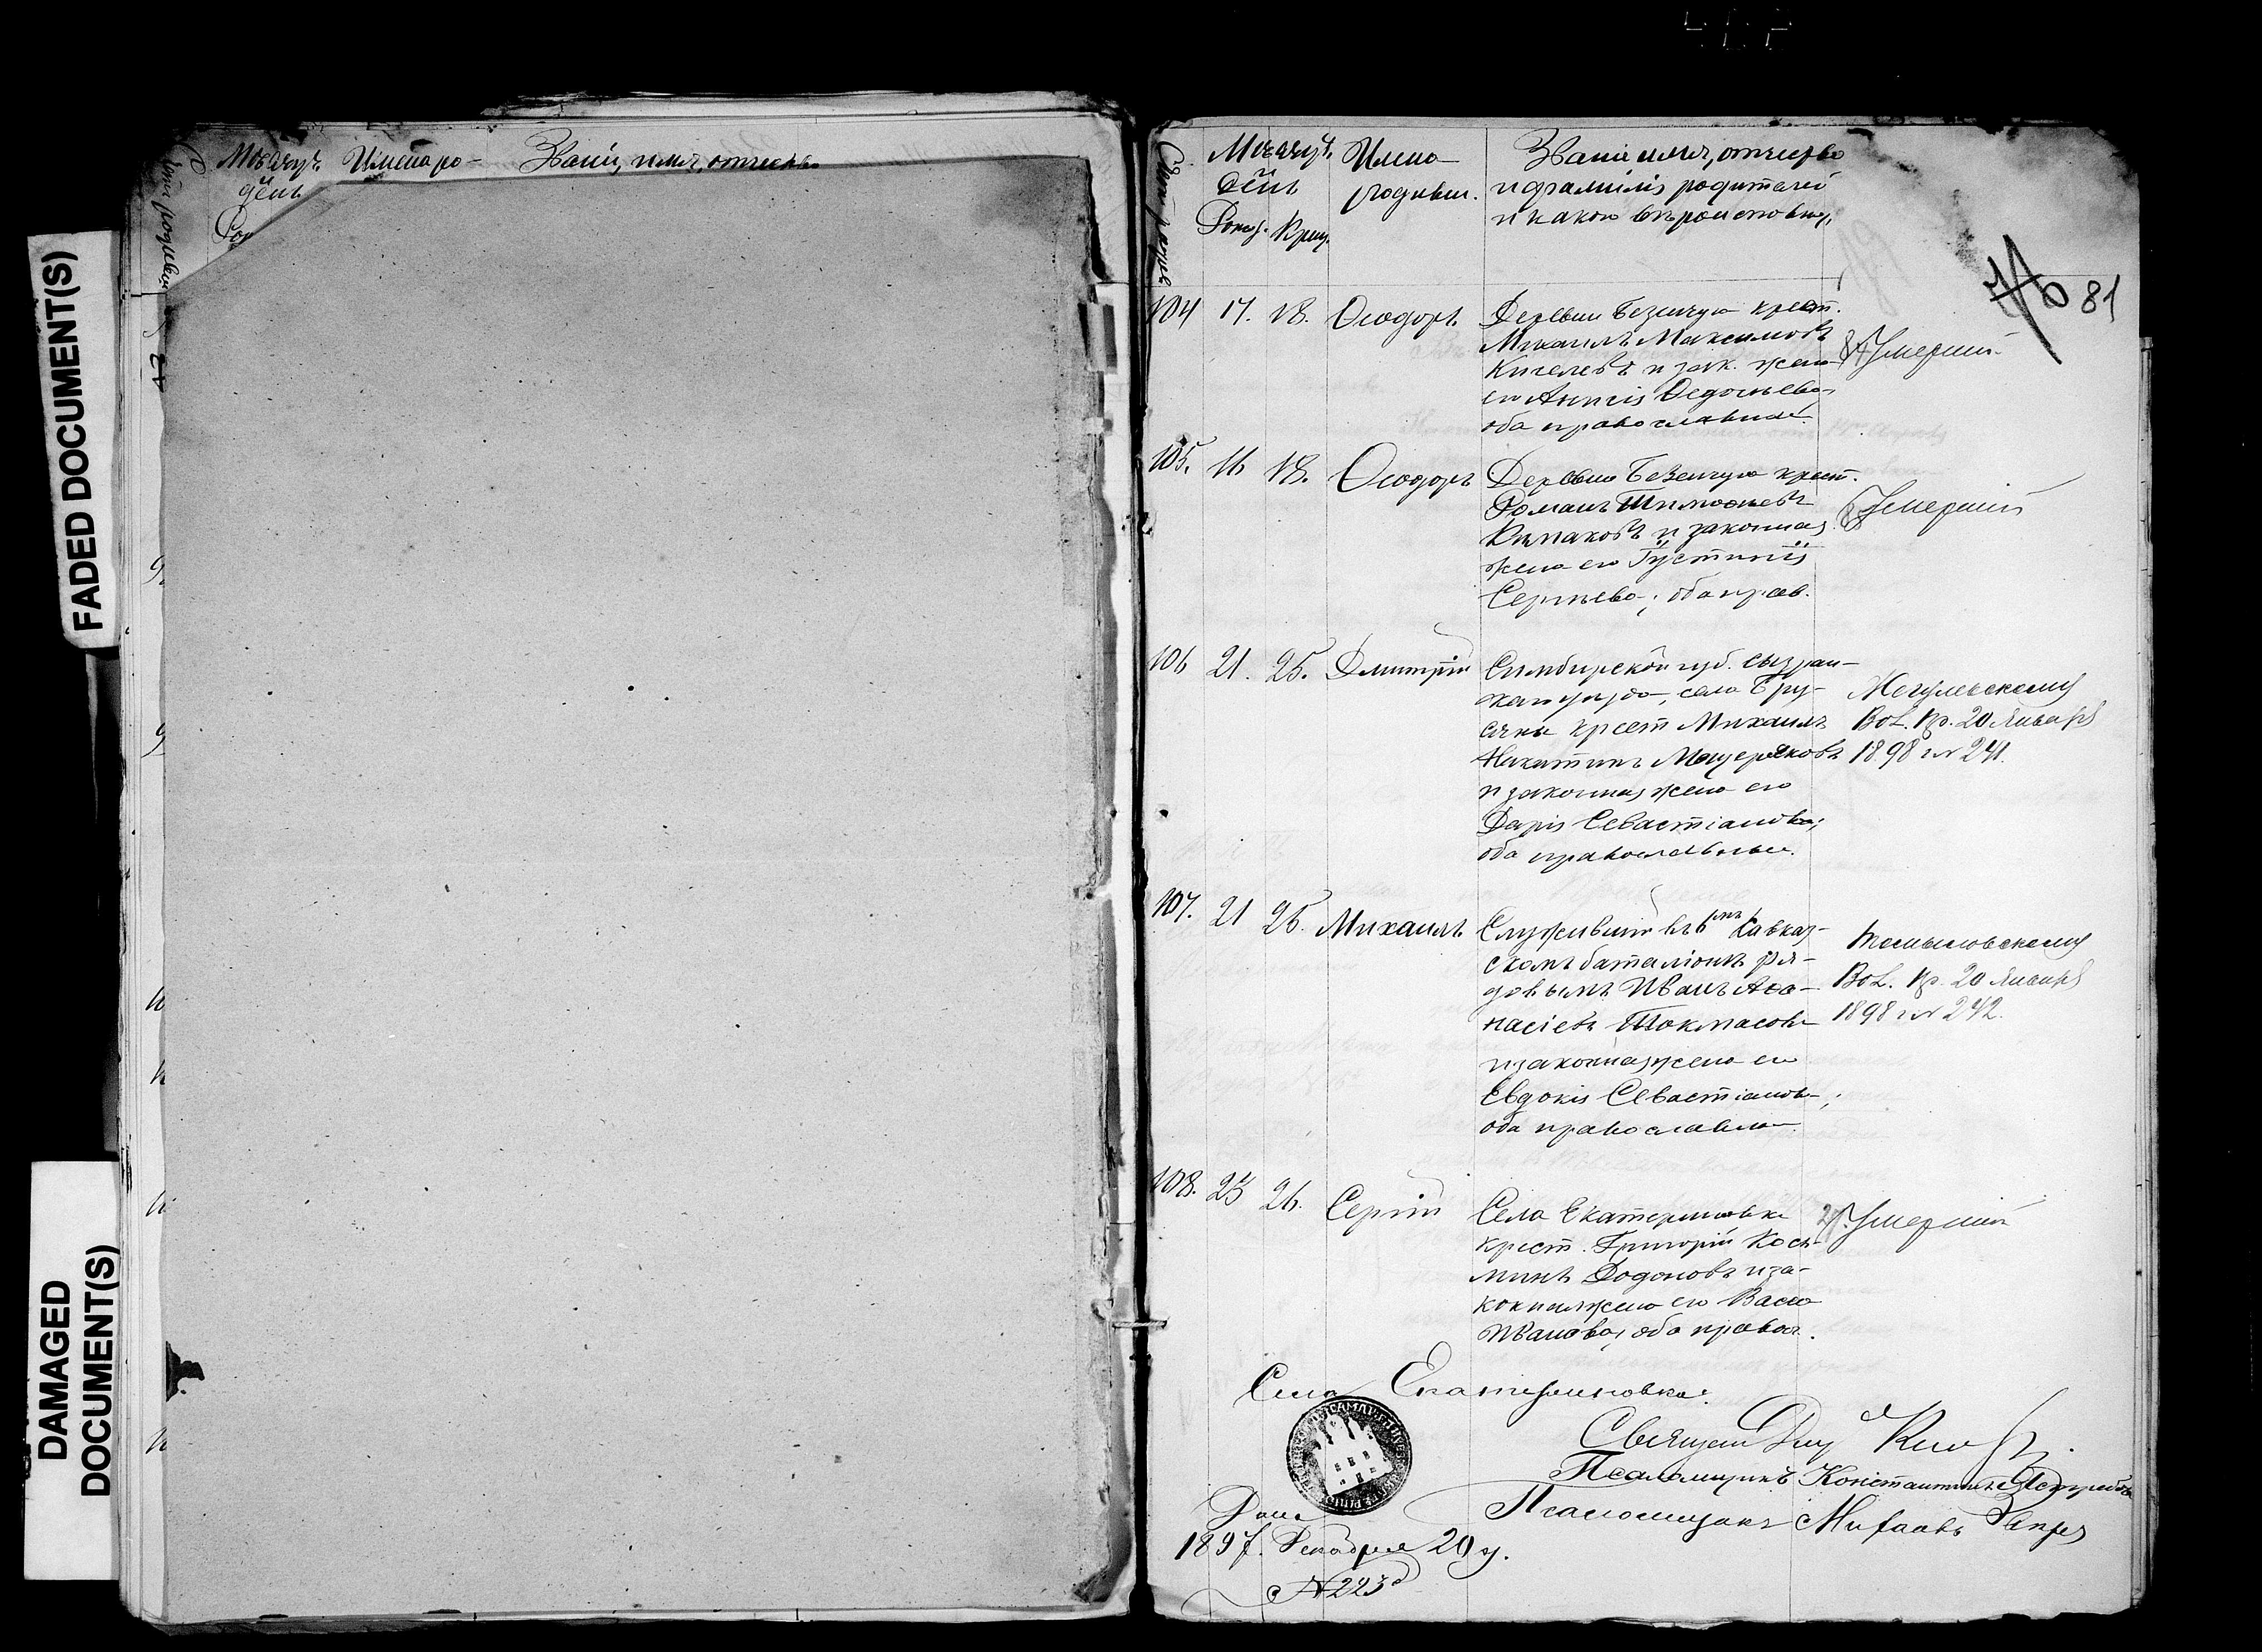 FADED DOCUMENT(S)
DAMAGED
DOCUMENT(S)
Мѣсяцъ Имена ро-
день
Званіе, имя, отчество
Мѣсяцъ
день
Рожд. Крещ.
Имена
родивш.
Званіе имя, отчество
и фамилія родителей
и какого вѣроисповѣд.
81
104 17. 18. Ѳеодоръ
Деревни Безенчука крест.
Михаилъ Максимовъ
Киселевъ и зак. жена
его Анисія
оба православные.
Умершій
105. 16 18. Ѳеодоръ
Деревни Безенчука крест.
Романъ Тимоѳеевъ
и законная
жена его Іустинія
Сергѣева; оба прав.
Умершій
106 21. 25. Дмитрій
Симбирской губ. Сызран-
скаго уѣзда, села Бру-
сяны крест Михаилъ
Никитинъ Мещеряковъ
и законная жена его
Дарія Севастіанова;
оба православные.
Вол. Пр. 20 Января
1898 г № 241.
107. 21 25. Михаилъ
Служившій въ 6мъ Кавказ-
скомъ баталіонѣ ря-
довымъ Иванъ Аѳа-
насіевъ Токмасовъ
и законная жена его
Евдокія Севастіанова;
оба православные
Томыловскому
Вол. Пр. 20 Января
1898 г № 242.
108. 23 26. Сергій
Села Екатериновки
крест. Григорій Кось-
минъ Додоновъ и за-
конная жена его Васса
Иванова, оба правосл.
Умершій
Село Екатериновка.
Священ
Псаломщикъ Константинъ
Псаломщикъ Михаилъ
1897. Декабря 20 д.
№ 223